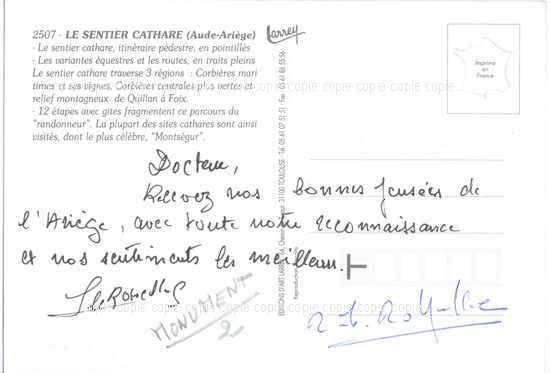 2507 - LE SENTIER CATHARE (Aude-Ariège)
- Le sentier cathare, itinéraire pédestre, en pointillés
- Les variantes équestres et les routes, en traits pleins
Le sentier cathare traverse 3 régions : Corbières mari
times et ses vignes, Corbières centrales plus vertes et
relief montagneux de Quillan à Foix.
- 12 étapes avec gîtes fragmentent ce parcours du
"randonneur". La plupart des sites cathares sont ainsi
visités, dont le plus célèbre, "Montségur".
Larrey
Imprimé
en
France
copie copie copie copie copie copie copie copie copie copie
Docteur,
Recevez nos bonnes pensées de
l'Ariège, avec toute notre reconnaissance
et nos sentiments les meilleurs.
MONUMENT
2
EDITIONS D'ART LARREY
31100 TOULOUSE - Tél. 05 61 07 51 51 - Fax : 05 61 86 55 56